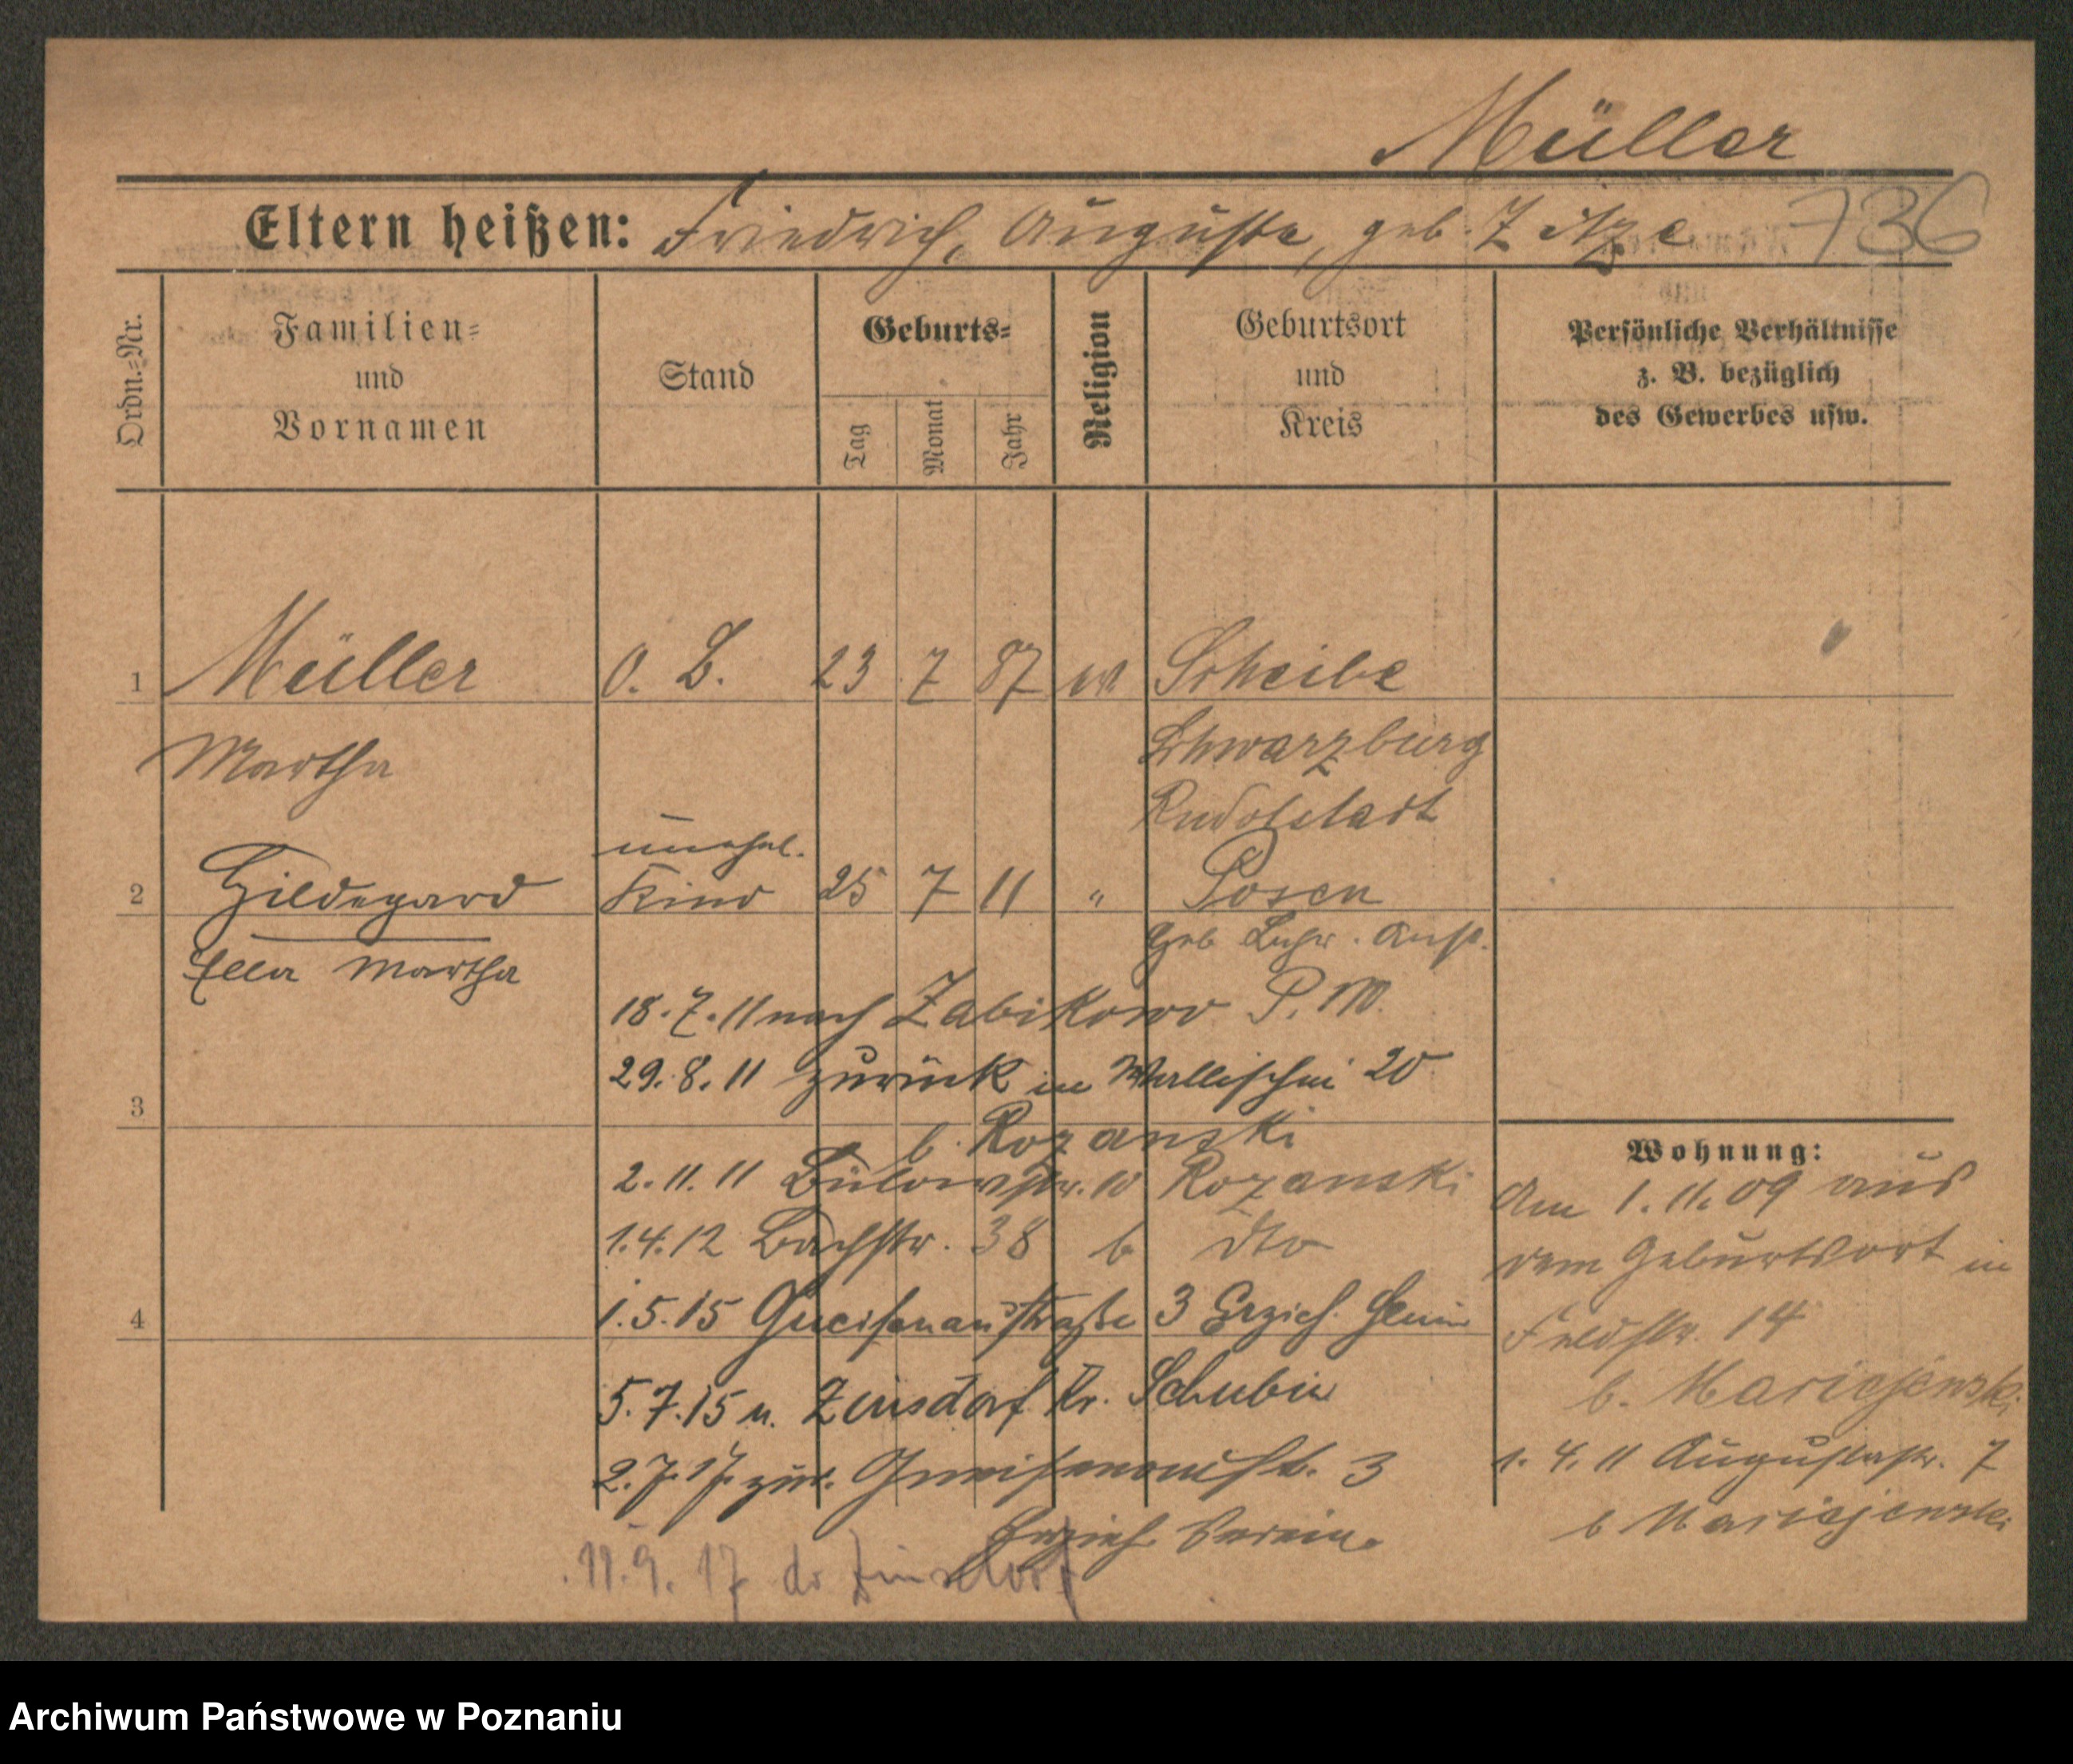 Müller
Eltern heißen: Friedrich, Auguste, geb. Zitze 736
Ordn.=Nr.
Familien=
und
Vornamen
Stand
Geburts=
Tag
Monat
Jahr
Religion
Geburtsort
und
Kreis
Persönliche Verhältnisse
z. B. bezüglich
des Gewerbes usw.
1 Müller O. B. 23 7 87 ev. Scheibe
Martha Schwarzburg
Rudolstadt
unehel.
2 Hildegard Kind 25 7 11 " Posen
Ella Martha Geb. Anst.
18.7.11 nach Zabikowo P. W.
29.8.11 zurück in Wallischei 20
3 b. Rozanski
2.11.11 Bülowstr. 10 Rozanski
1.4.12 Bachstr. 38 b dto
4 1.5.15 Gneisenaustraße 3 Erzieh.
5.7.15 n. Zinsdorf Kr. Schubin
2.7.17 zur. Gneisenaustr. 3
Erzieh. Verein.
11.9.17 do Zinsdorf
Wohnung:
Am 1.11.09 aus
dem Geburtsort in
Feldstr. 14
b. Maricjewski
1.4.11 Augustastr. 7
b Maricjewski
Archiwum Państwowe w Poznaniu